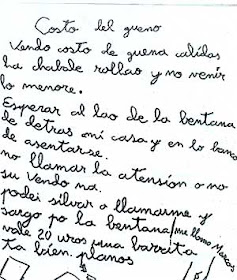 Costo del gueno
Vendo costo de guena calidas
ha chabale rollao y no venir
lo menore.
Esperar al lao de la bentana
de detras mi casa y en lo banco
de asentarse.
no llamar la atension o no
su vendo na.
podei silvar o llamarme y
sargo po la bentana, (me llamo Marcos)
vale 20 uros una barrita
ta bien. planos